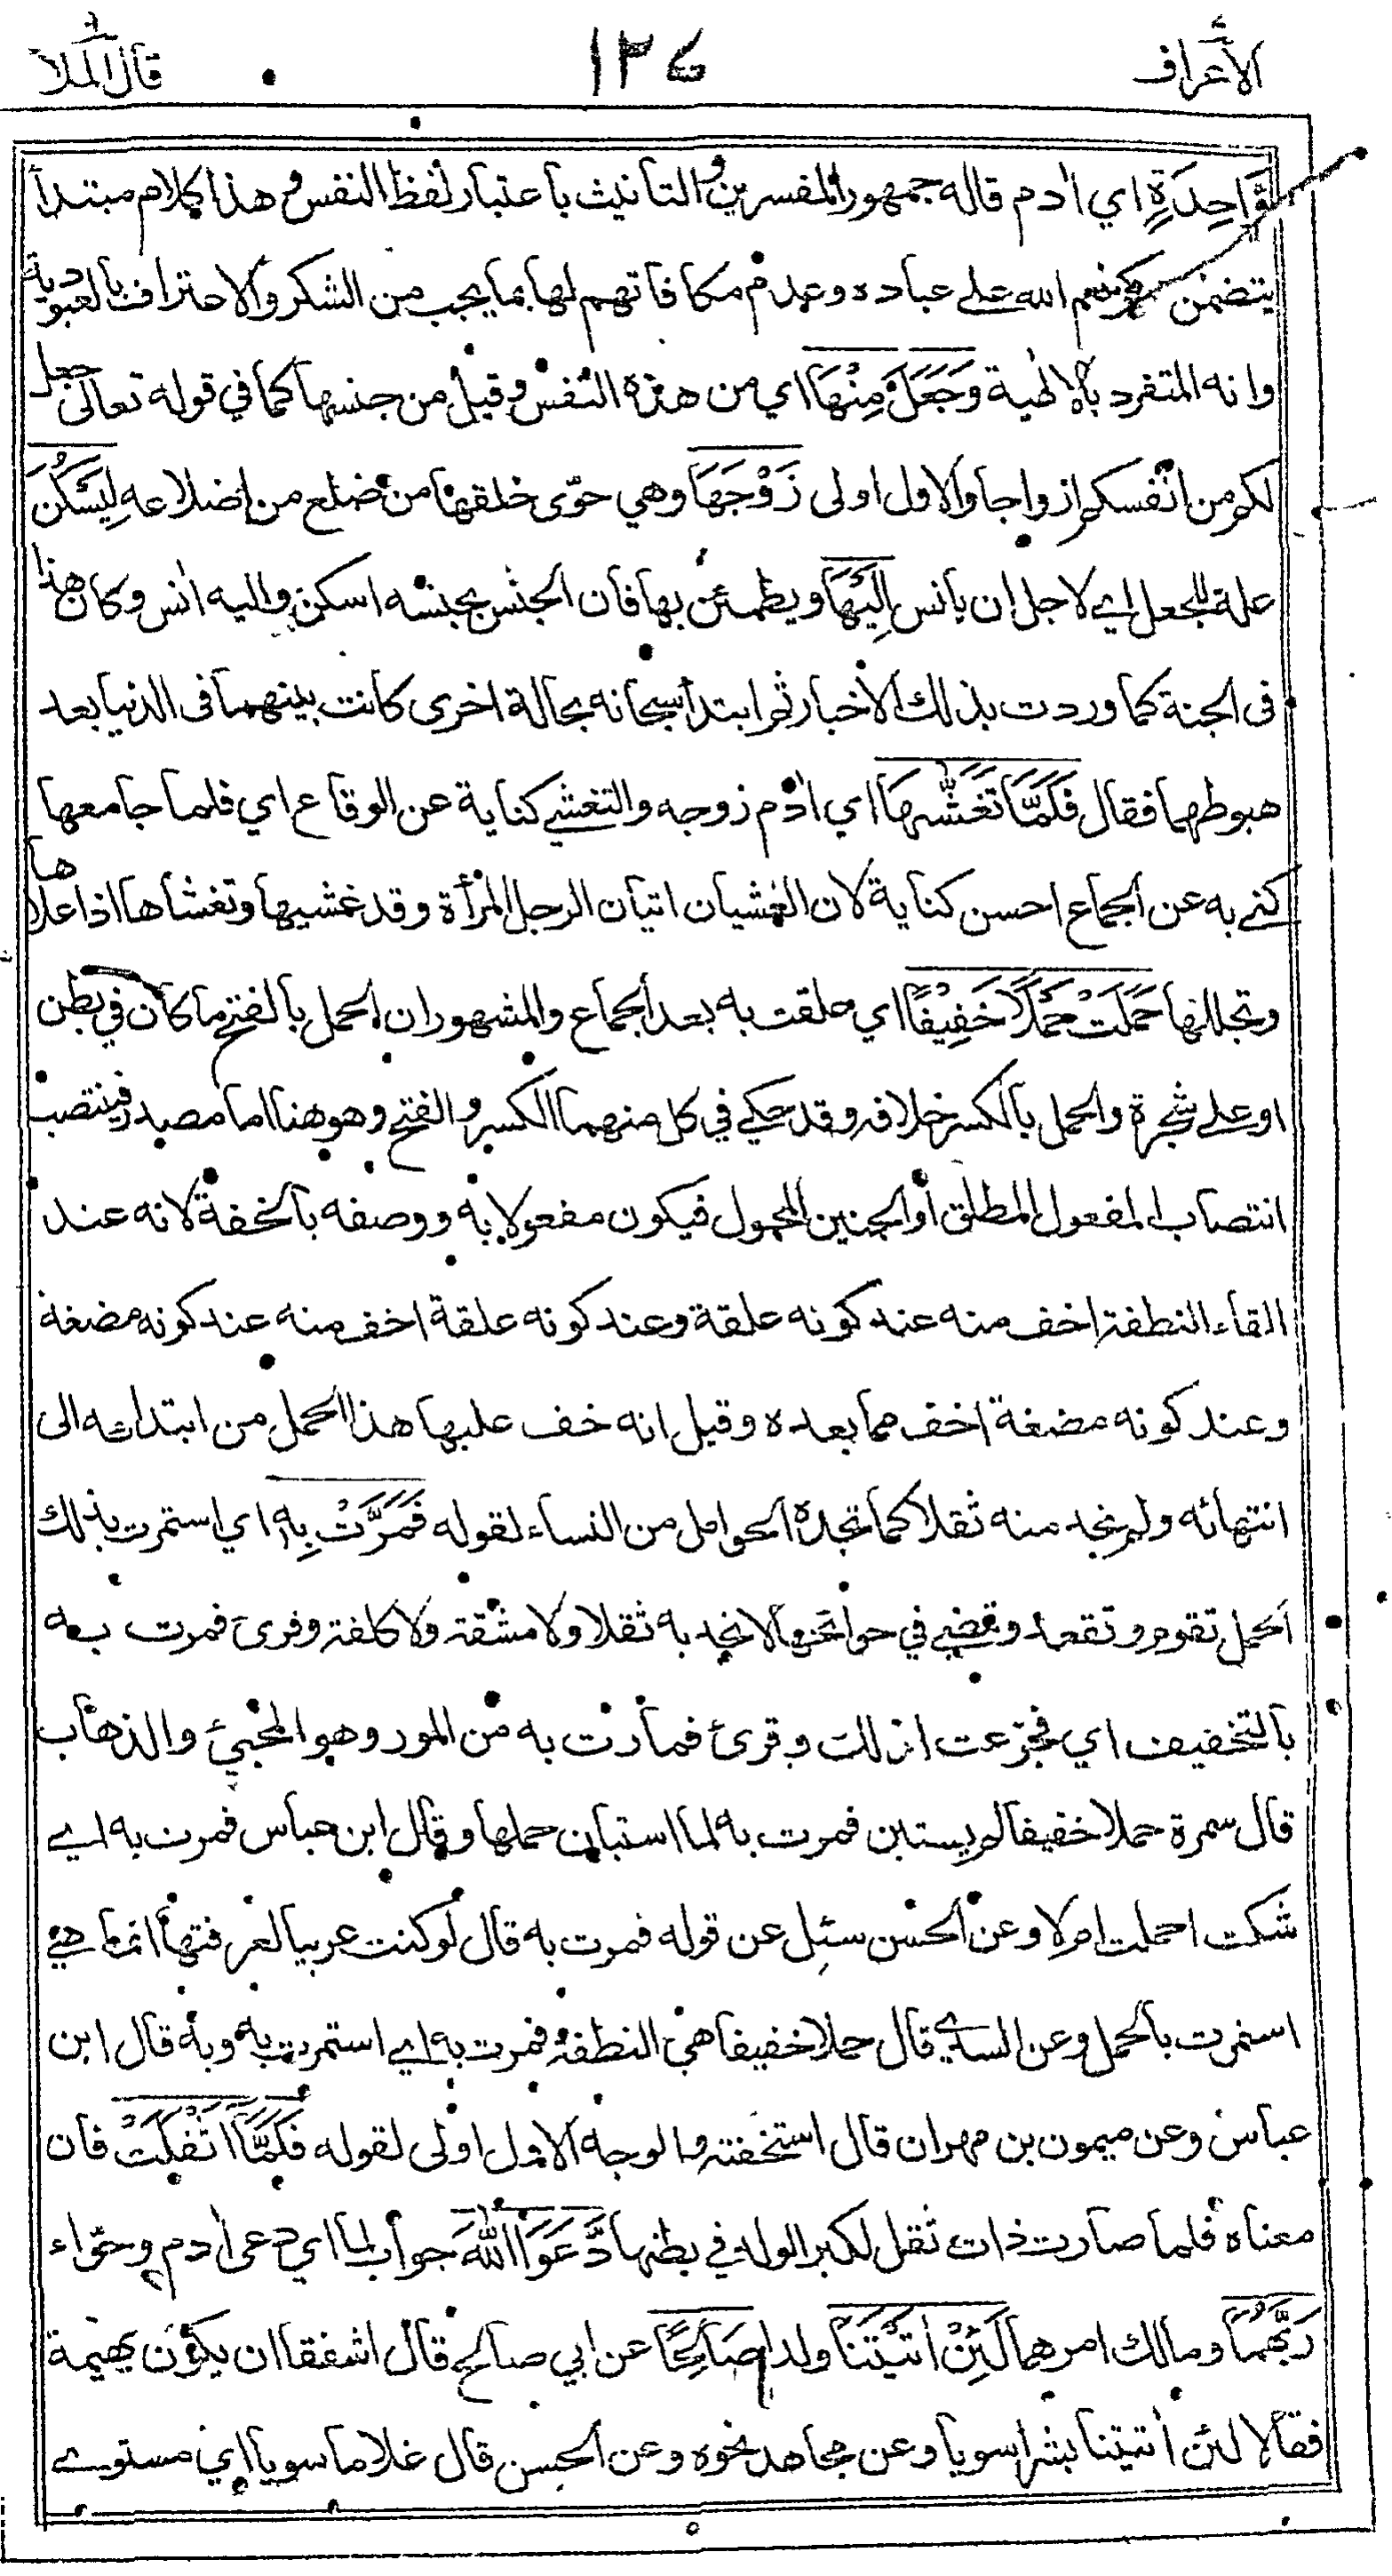 الأعراف ١٣٤ قال الملأ
وَّاحِدَةٍ اي اٰدم قاله جمهور المفسرين والتانيث باعتبار لفظ النفس وهذا كلام مبتدأ
يتضمن ذكر نعم الله على عباده وعدم مكافاتهم لها بما يجب من الشكر والاعتراف بالعبودية
وانه المتفرد بالالهية وَجَعَلَ مِنْهَا اي من هذه النفس وقيل من جنسها كما في قوله تعالى جعل
لكم من انفسكم ازواجا والاول اولى زَوْجَهَا وهي حوّى خلقها من ضلع من اضلاعه لِيَسْكُنَ
علة للجعل اي لاجل ان يانس اِلَيْهَا ويطمئن بها فان الجنس بجنسه اسكن واليه انس وكان هذا
فى الجنة كما وردت بذلك الاخبار ثم ابتدأ سبحانه بحالة اخرى كانت بينهما فى الدنيا بعد
هبوطهما فقال فَلَمَّا تَغَشّٰىهَا اي اٰدم زوجه والتغشي كناية عن الوقاع اي فلما جامعها
كنى به عن الجماع احسن كناية لان الغشيان اتيان الرجل المرأة وقد غشيها وتغشاها اذا علاها
وتجللها حَمَلَتْ حَمْلًا خَفِيْفًا اي علقت به بعد الجماع والمشهور ان الحمل بالفتح ما كان في بطن
او على شجرة والحمل بالكسر خلافه وقد حكي في كل منهما الكسر والفتح وهو هنا اما مصدر فينتصب
انتصاب المفعول المطلق أو الجنين المحمول فيكون مفعولا به ووصفه بالخفة لانه عند
القاء النطفة اخف منه عند كونه علقة وعند كونه علقة اخف منه عند كونه مضغة
وعند كونه مضغة اخف مما بعده وقيل انه خف عليها هذا الحمل من ابتدائه الى
انتهائه ولم تجد منه ثقلا كما تجده الحوامل من النساء لقوله فَمَرَّتْ بِهٖ اي استمرت بذلك
الحمل تقوم وتقعد وتمضي في حوائجها لا تجد به ثقلا ولا مشقة ولا كلفة وقرئ فمرت به
بالتخفيف اي فجزعت لذلك وقرئ فمارت به من المور وهو المجيئ والذهاب
قال سمرة حملا خفيفا لم يستبن فمرت به لما استبان حملها وقال ابن عباس فمرت به اي
شكت احملت ام لا وعن الحسن سئل عن قوله فمرت به قال لو كنت عربيا لعرفتها انما هي
استمرت بالحمل وعن السدي قال حملا خفيفا هي النطفة فمرت به اي استمرت به وبه قال ابن
عباس وعن ميمون بن مهران قال استخفته والوجه الاول اولى لقوله فَلَمَّا اَثْقَلَتْ فان
معناه فلما صارت ذات ثقل لكبر الولد في بطنها دَّعَوَا اللّٰهَ جواب لما اي دعى اٰدم وحوّاء
رَبَّهُمَا ومالك امرهما لَئِنْ اٰتَيْتَنَا ولدا صَالِحًا عن ابي صالح قال اشفقا ان يكون بهيمة
فقالا لئن اٰتيتنا بشرا سويا وعن مجاهد نحوه وعن الحسن قال غلاما سويا اي مستوي